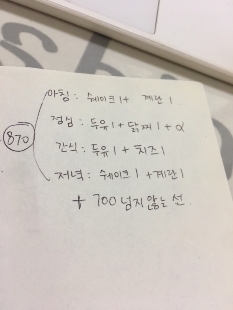 아침 : 쉐이크 1 + 계란 1
870
점심 : 두유 1 + 닭찌 1 + α
간식 : 두유 1 + 치즈 1
저녁 : 쉐이크 1 + 계란 1
+ 700 넘지않는 선